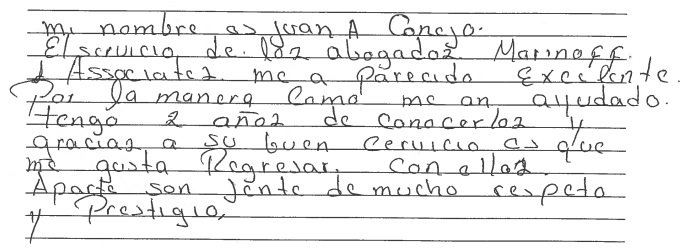 mi nombre es juan A Conejo.
El servicio de los abogados Marinoff.
& Associates me a parecido Excelente.
Por la manera Como me an ayudado.
tengo 2 años de conocerlos y
gracias a su buen Cervicio es que
me gusta Regresar. con ellos.
Aparte son jente de mucho respeto
y Prestigio,